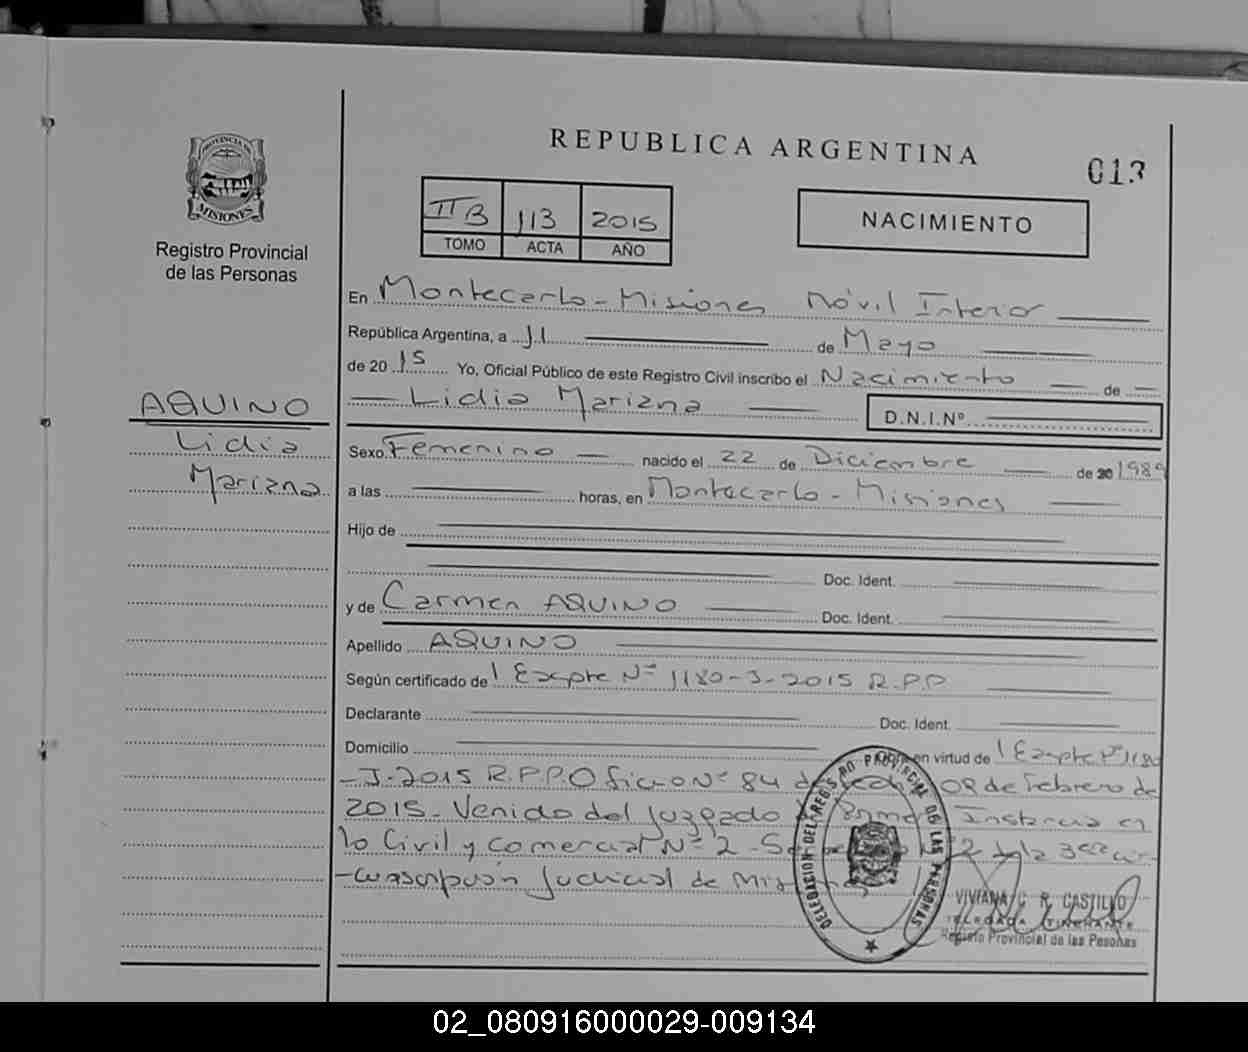 REPUBLICA ARGENTINA
013
PROVINCIA DE
MISIONES
Registro Provincial
de las Personas
IIB 113 2015
TOMO ACTA AÑO
NACIMIENTO
En Montecarlo - Misiones Móvil Interior
República Argentina, a 11 de Mayo
de 2015 Yo, Oficial Público de este Registro Civil inscribo el Nacimiento de
Lidia Mariana
D.N.I.Nº
AQUINO
Lidia
Mariana
Sexo Femenino nacido el 22 de Diciembre de 20 1989
a las horas, en Montecarlo - Misiones
Hijo de
Doc. Ident.
y de Carmen AQUINO Doc. Ident.
Apellido AQUINO
Según certificado de Expte Nº 1180-J-2015 R.P.P
Declarante Doc. Ident.
Domicilio en virtud de Expte Nº 1180
-J-2015 R.P.P. Oficio Nº 84 de fecha 09 de Febrero de
2015. Venido del Juzgado de Primera Instancia en
lo Civil y Comercial Nº 2 - 2 de la 3era cir-
-cunscripción Judicial de Misiones
DELEGACION DEL REGISTRO PROVINCIAL DE LAS PERSONAS
VIVIANA C. R. CASTILLO
DELEGADA ITINERANTE
Registro Provincial de las Pesonas
02_080916000029-009134